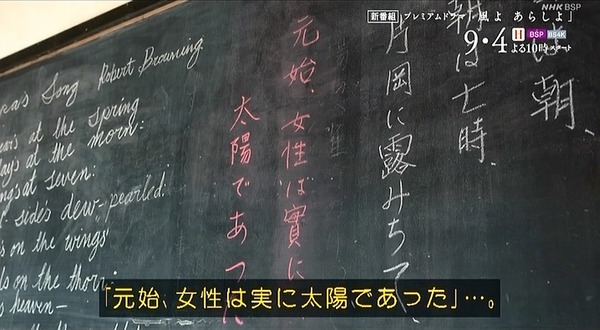 NHK BSP
新番組 プレミアムドラマ「風よ あらしよ」
9・4 日 BSP BS4K よる10時スタート
Song Robert Browning
at the spring
at the morn:
at seven:
side's dew-pearled:
on the wing
on the thorn:
heaven—
は朝、
朝は七時、
片岡に露みちて、
元始、女性は實に
太陽であつた
「元始､女性は実に太陽であった」…。